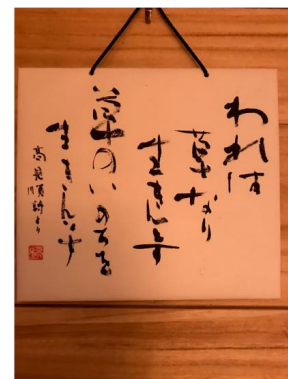 われは
草なり
生きんとす
草のいのちを
生きんとす
高見順詩より